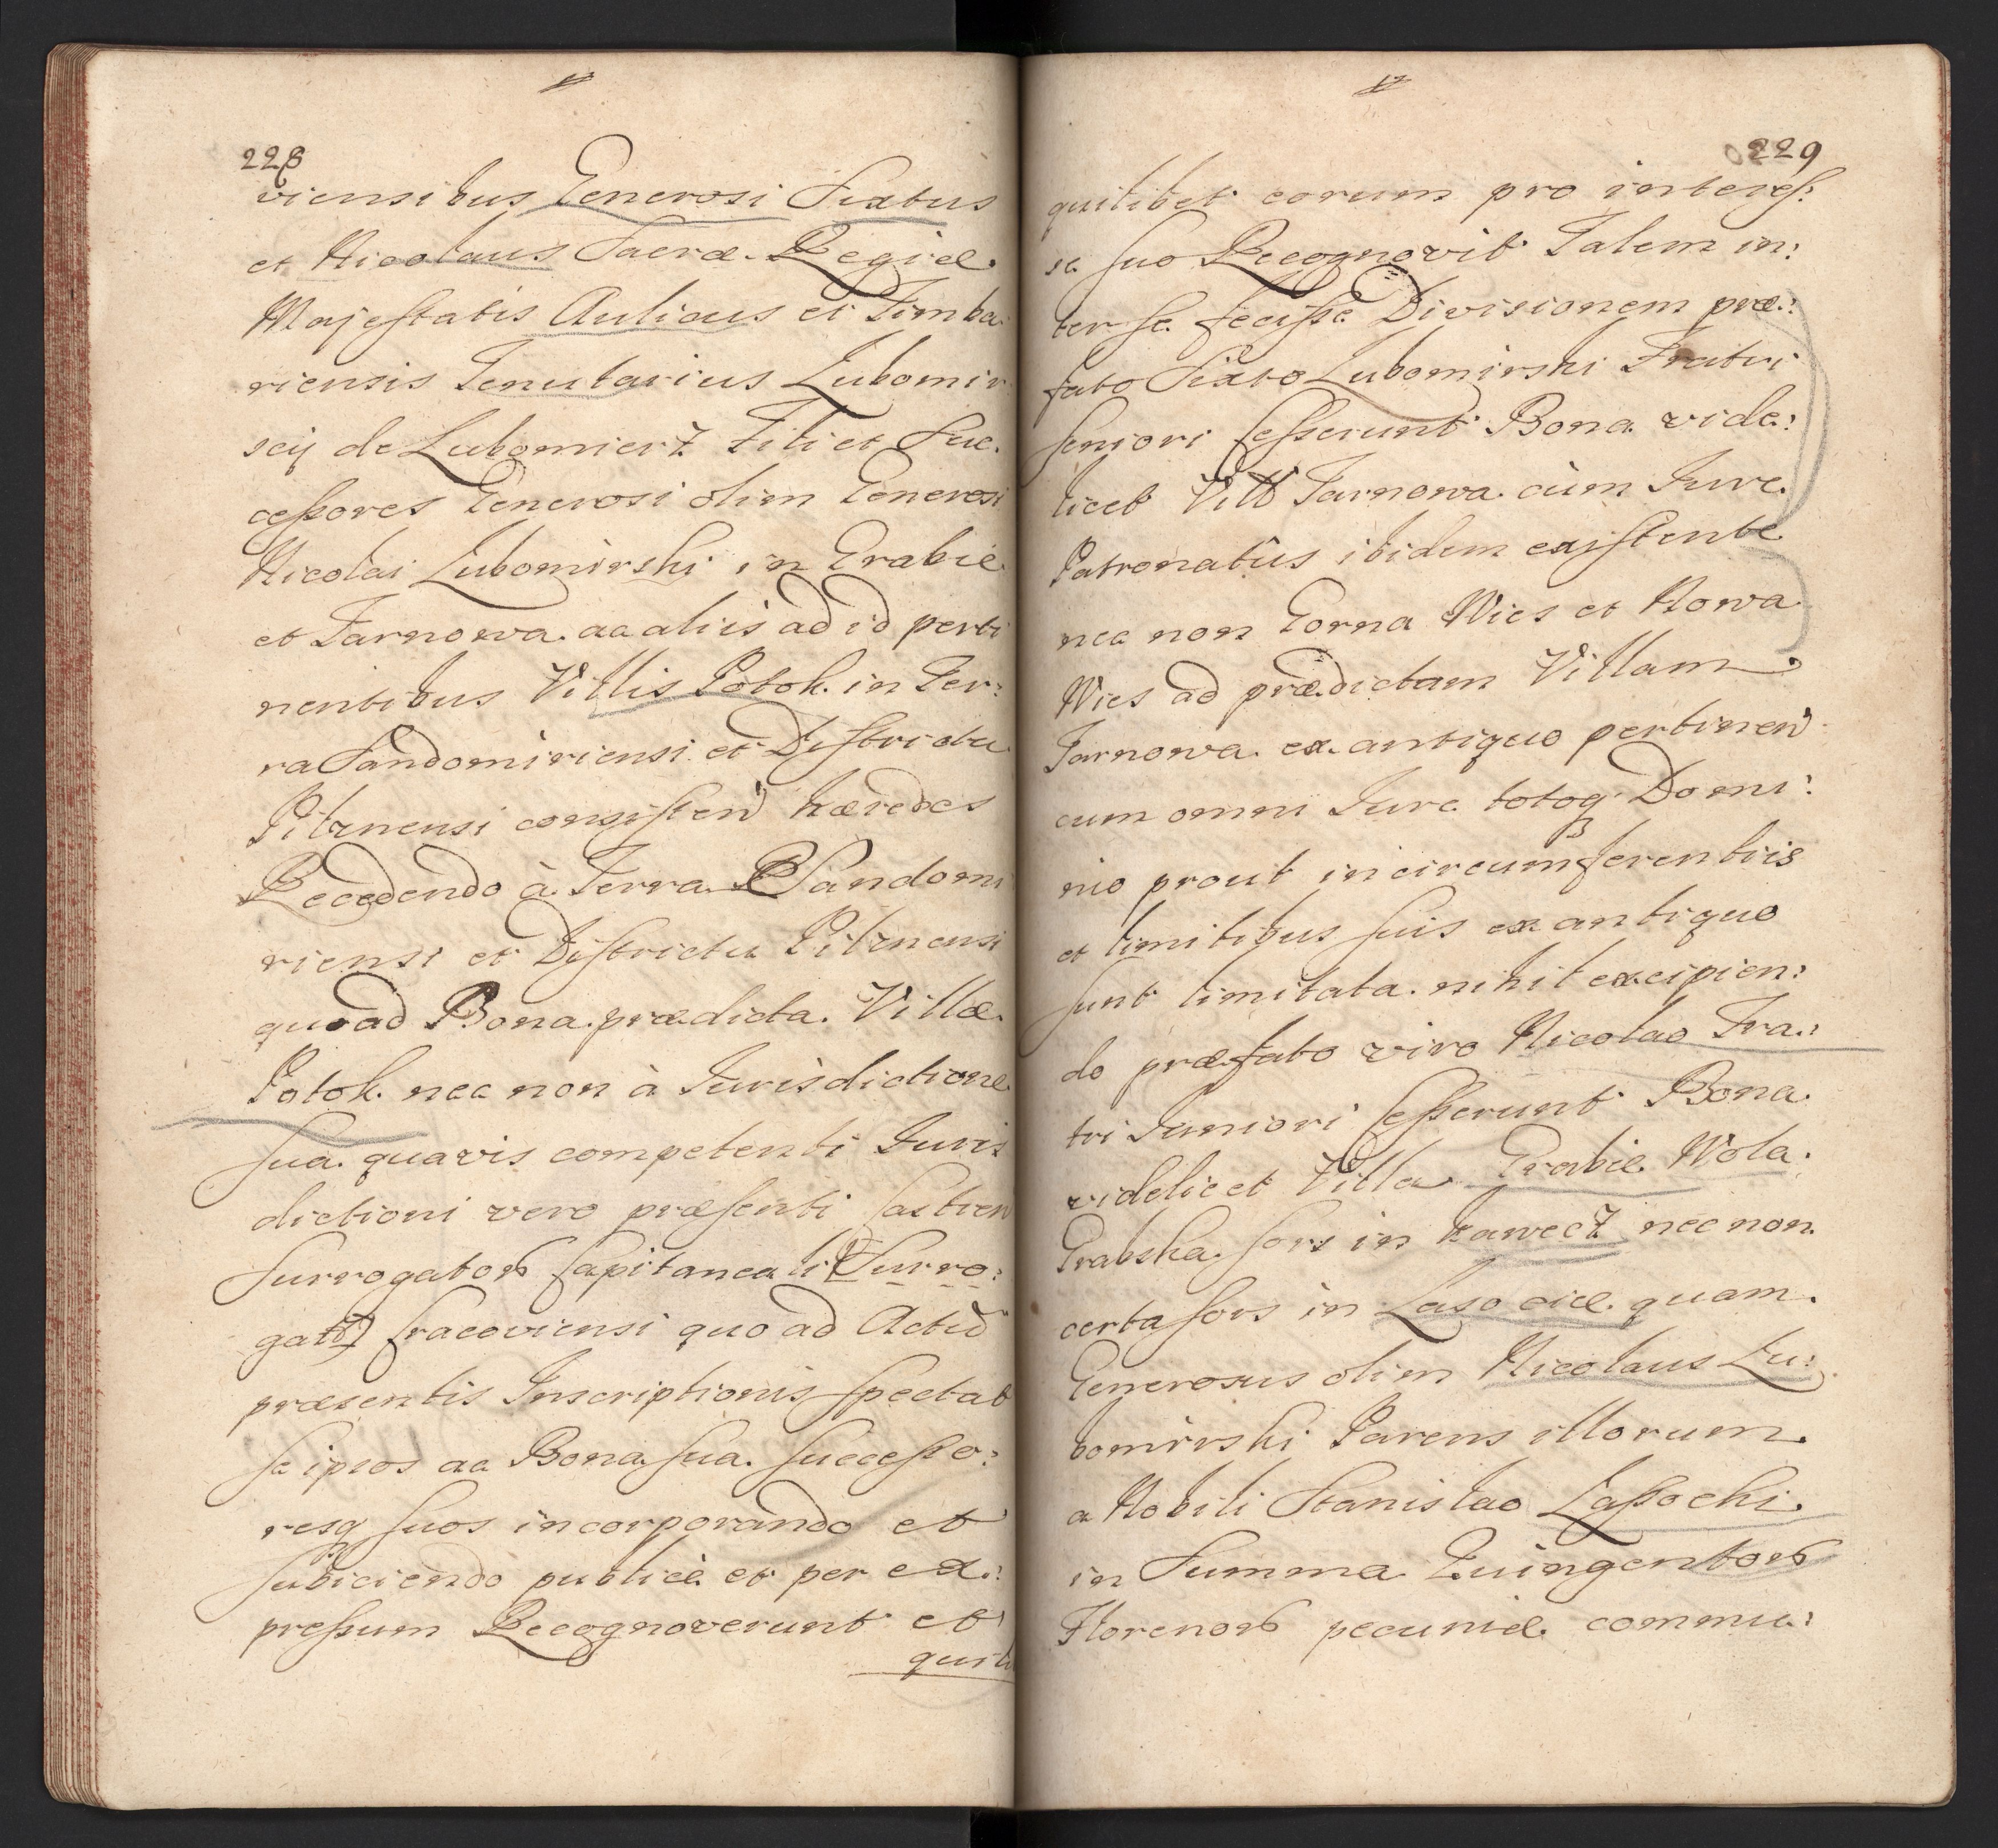 228
viensibus Generosi Sixtus
et Nicolaus Sacræ Regiæ
Majestatis Aulicus et Timba
riensis Tenutarius Lubomir
scij de Lubomierz Filii et Suc:
cessores Generosi olim Generosi
Nicolai Lubomirski in Grabie
et Tarnowa ac aliis ad id perti
nentibus Villis Potok in Ter:
ra Sandomiriensi et Districtu
Pilznensi consisten hæredes
Recedendo à Terra Sandomi
riensi et Districtu Pilznensi
quoad Bona prædicta Villæ
Potok nec non à Jurisdictione
sua quavis competenti Juris
dictioni vero præsenti Castren
Surrogator Capitaneali (Surro:
gati) Cracoviensi quo ad Actum
præsentis Inscriptionis spectat
se ipsos ac Bona sua successo:
resq suos incorporando et
subiciendo publicè et per ex:
pressum Recognoverunt et
quili
229
quilibet eorum pro interes:
se suo Recognovit Talem in:
ter se fecisse Divisionem præ:
fato Sixto Lubomirski Fratri
seniori cesserunt Bona vide:
licet Vill Tarnowa cùm Jure
Patronatûs ibidem existente
nec non Gorna Wies et Nowa
Wies ad prædictam Villam
Tarnowa ex antiquo pertinen
cum omni Jure totoq Domi:
nio prout in circumferentiis
et limitibus suis ex antiquo
sunt limitata nihil excipien:
do præfato viro Nicolao Fra:
tri Juniori cesserunt Bona
videlicet Villa Grabie Wola
Grabska sors in Zawecz nec non
certa sors in Lasocice quam
Generosus olim Nicolaus Lu:
bomirski Parens illorum
a Nobili Stanislao Lassocki
in Summa Quingentor
Florenor pecuniæ commu: